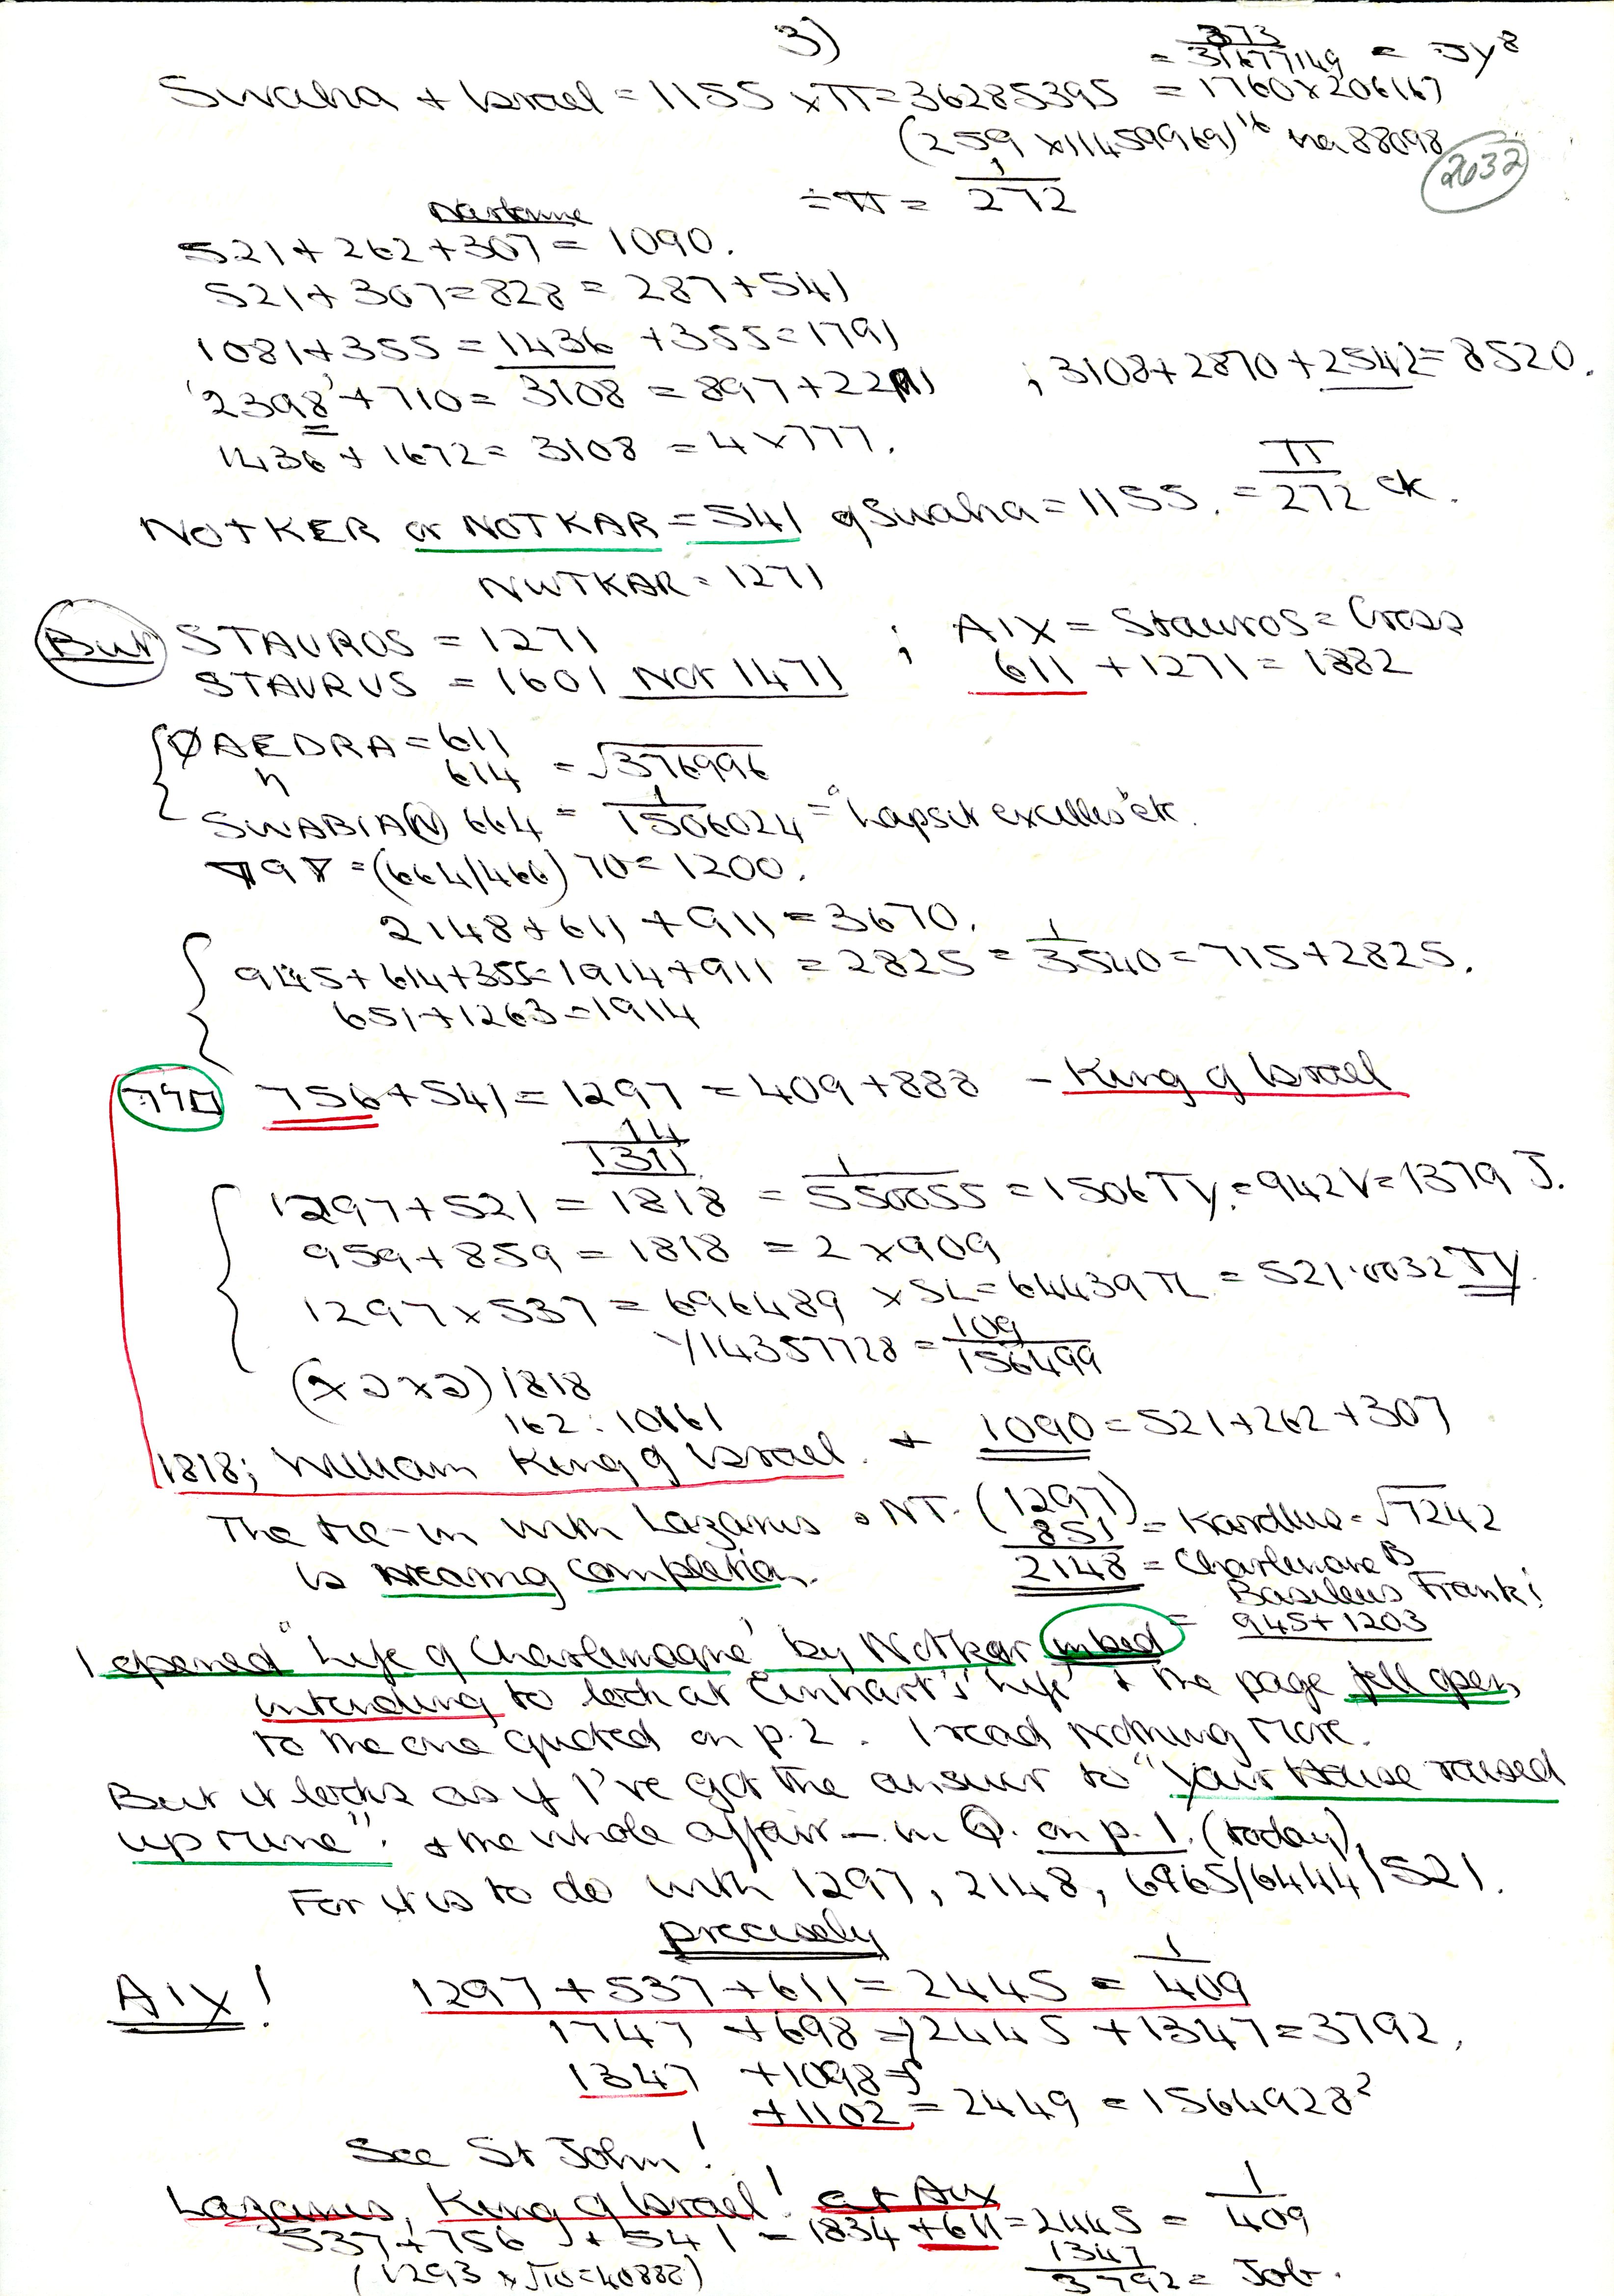 3)
= 373/31677149 = Jy⁸
Swaha + Israel = 1155 × π = 36285395 = 1760 × 206167
(259 × 11459969)
2032
÷ π = 1/272
521 + 262 + 307 = 1090.
521 + 307 = 828 = 287 + 541
1081 + 355 = 1436 + 355 = 1791
'2398' + 710 = 3108 = 897 + 2211 ; 3108 + 2870 + 2542 = 8520.
1436 + 1672 = 3108 = 4 × 777.
NOTKER or NOTKAR = 541 g Swaha = 1155. = π/272 etc.
NWTKAR = 1271
But STAUROS = 1271 ; AIX = Stauros = Cross
STAURUS = 1601 Not 1471 611 + 1271 = 1882
ØAEDRA = 611
" 614 = √376996
SWABIA(N) 664 = 1/1506024 = "Lapsit excillis" etc.
= (664/466) 70 = 1200.
2148 + 611 + 911 = 3670.
945 + 614 + 355 = 1914 + 911 = 2825 = 1/3540 = 715 + 2825.
651 + 1263 = 1914
756 + 541 = 1297 = 409 + 888 - King of Israel
14
1311
1297 + 521 = 1818 = 1/550055 = 1506 TY. = 942V = 1379 J.
959 + 859 = 1818 = 2 × 909
1297 × 537 = 696489 × SL = 64439 TL = 521.0032 TY
√14357728 = 109/156499
1818
162 : 10161
1818; William King of Israel. + 1090 = 521 + 262 + 307
The tie-in with Lazarus & NT. (1297)
851 = Karolus = √7242
is nearing completion. 2148 = Charlemane B
Basileus Frank!
= 945 + 1203
I opened "Life of Charlemagne" by Notkar in bed
intending to look at Einhart's 'Life' & the page fell open
to the one quoted on p.2. I read nothing more.
But it looks as if I've got the answer to "Your House raised
up mine". & the whole affair – in Q. on p.1. (today).
For it is to do with 1297, 2148, 6965/6444/521.
precisely
AIX! 1297 + 537 + 611 = 2445 = 1/409
1747 + 698 = 2445 + 1347 = 3792.
1347 + 1098
+ 1102 = 2449 = 1564928²
See St John!
Lazarus, King of Israel! at Aix
537 + 756 + 541 = 1834 + 611 = 2445 = 1/409
(1293 × √10 = 40888) 1347
3792 = Job.